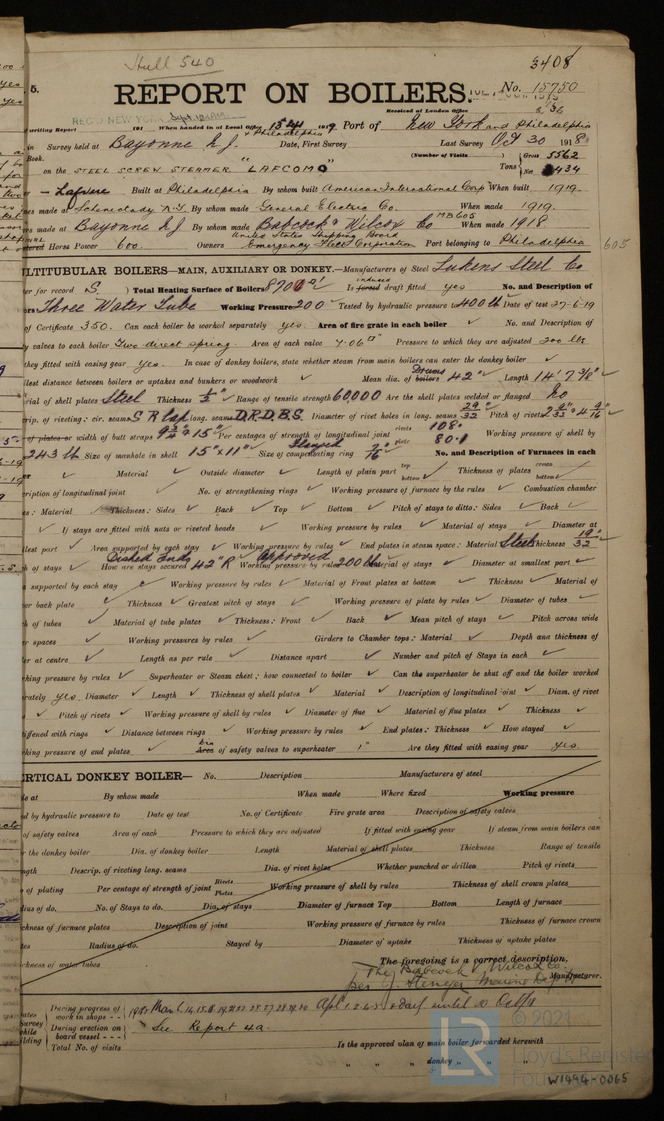 Hull 540
3408
5.
REPORT ON BOILERS.
No. 15750
Received at London Office
writing Report 191 When handed in at Local Office 1919 Port of New York and Philadelphia
in Survey held at Bayonne N.J. & Philadelphia Date, First Survey Last Survey Oct 30 1918
Book. (Number of Visits ) Gross 5562
on the STEEL SCREW STEAMER "LAFCOMO" Tons Net 3434
Built at Philadelphia By whom built American International Corp When built 1919.
es made at Schenectady N.Y. By whom made General Electric Co. When made 1919.
es made at Bayonne N.J. By whom made Babcock & Wilcox Co MB605 When made 1918
Horse Power 600. Owners United States Shipping Board Emergency Fleet Corporation Port belonging to Philadelphia 605
ULTITUBULAR BOILERS—MAIN, AUXILIARY OR DONKEY.—Manufacturers of Steel Lukens Steel Co
er for record S. Total Heating Surface of Boilers Is forced induced draft fitted yes No. and Description of
rs Three Water Tube Working Pressure 200 Tested by hydraulic pressure to 400 lb Date of test 27-6-19
of Certificate 350. Can each boiler be worked separately yes. Area of fire grate in each boiler ✓ No. and Description of
y valves to each boiler Two direct spring. Area of each valve 7.06 □" Pressure to which they are adjusted 200 lbs
they fitted with easing gear yes. In case of donkey boilers, state whether steam from main boilers can enter the donkey boiler ✓
llest distance between boilers or uptakes and bunkers or woodwork ✓ Mean dia. of boilers Drums 42" Length 14' 7 3/8"
rial of shell plates Steel Thickness 1/2" Range of tensile strength 60,000 Are the shell plates welded or flanged No
rip. of riveting: cir. seams S R Lap long. seams D.R.D.B.S. Diameter of rivet holes in long. seams 29/32" Pitch of rivets
of plates or width of butt straps 9 3/4" x 15" Per centages of strength of longitudinal joint rivets 108. plate 80.1 Working pressure of shell by
243 lb Size of manhole in shell 15" x 11" Size of compensating ring Flanged No. and Description of Furnaces in each
er ✓ Material ✓ Outside diameter ✓ Length of plain part top bottom ✓ Thickness of plates crown bottom ✓
cription of longitudinal joint ✓ No. of strengthening rings ✓ Working pressure of furnace by the rules ✓ Combustion chamber
es: Material Thickness: Sides ✓ Back ✓ Top ✓ Bottom ✓ Pitch of stays to ditto: Sides ✓ Back ✓
✓ If stays are fitted with nuts or riveted heads ✓ Working pressure by rules ✓ Material of stays ✓ Diameter at
llest part ✓ Area supported by each stay ✓ Working pressure by rules ✓ End plates in steam space: Material Steel Thickness
h of stays ✓ How are stays secured Dished Ends 42" R Working pressure by rules Approved 200 lbs Material of stays ✓ Diameter at smallest part ✓
a supported by each stay ✓ Working pressure by rules ✓ Material of Front plates at bottom ✓ Thickness ✓ Material of
er back plate ✓ Thickness ✓ Greatest pitch of stays ✓ Working pressure of plate by rules ✓ Diameter of tubes ✓
h of tubes ✓ Material of tube plates ✓ Thickness: Front ✓ Back ✓ Mean pitch of stays ✓ Pitch across wide
er spaces ✓ Working pressures by rules ✓ Girders to Chamber tops: Material ✓ Depth and thickness of
er at centre ✓ Length as per rule ✓ Distance apart ✓ Number and pitch of Stays in each ✓
king pressure by rules ✓ Superheater or Steam chest; how connected to boiler ✓ Can the superheater be shut off and the boiler worked
rately yes. Diameter ✓ Length ✓ Thickness of shell plates ✓ Material ✓ Description of longitudinal joint ✓ Diam. of rivet
✓ Pitch of rivets ✓ Working pressure of shell by rules ✓ Diameter of flue ✓ Material of flue plates ✓ Thickness ✓
tiffened with rings ✓ Distance between rings ✓ Working pressure by rules ✓ End plates: Thickness ✓ How stayed ✓
king pressure of end plates ✓ Area Dia of safety valves to superheater 1" Are they fitted with easing gear yes.
RTICAL DONKEY BOILER— No. Description Manufacturers of steel
de at By whom made When made Where fixed Working pressure
ed by hydraulic pressure to Date of test No. of Certificate Fire grate area Description of safety valves
of safety valves Area of each Pressure to which they are adjusted If fitted with easing gear If steam from main boilers can
r the donkey boiler Dia. of donkey boiler Length Material of shell plates Thickness Range of tensile
ngth Descrip. of riveting long. seams Dia. of rivet holes Whether punched or drilled Pitch of rivets
of plating Per centage of strength of joint Rivets Plates Working pressure of shell by rules Thickness of shell crown plates
ius of do. No. of Stays to do. Dia. of stays Diameter of furnace Top Bottom Length of furnace
ckness of furnace plates Description of joint Working pressure of furnace by rules Thickness of furnace crown
tes Radius of do. Stayed by Diameter of uptake Thickness of uptake plates
ckness of water tubes
The foregoing is a correct description,
The Babcock & Wilcox Co.
Manufacturer.
ates During progress of work in shops - -
Survey During erection on board vessel - - - See Report 4a.
while
ilding Total No. of visits
Is the approved plan of main boiler forwarded herewith
" " " donkey " " "
© 2021
LR
Lloyd's Register
Foundation
W1494-0065